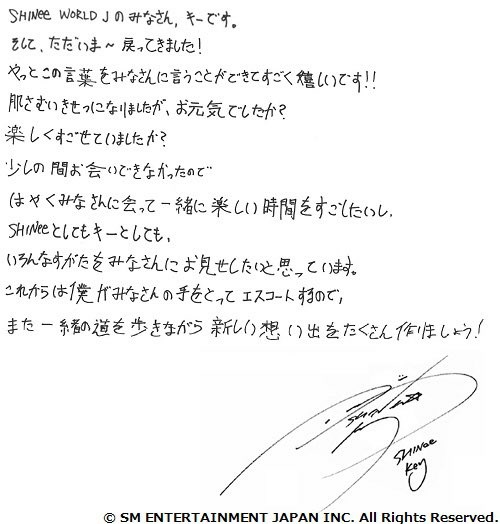 SHINee WORLD Jのみなさん, キーです。
そして、ただいま〜戻ってきました!
やっとこの言葉をみなさんに言うことができてすごく嬉しいです!!
肌さむいきせつになりましたが、お元気でしたか?
楽しくすごせていましたか?
少しの間お会いできなかったので
はやくみなさんに会って一緒に楽しい時間をすごしたいし、
SHINeeとしてもキーとしても、
いろんなすがたをみなさんにお見せしたいと思っています。
これからは僕がみなさんの手をとってエスコートするので、
また一緒の道を歩きながら新しい想い出をたくさん作りましょう!
SHINee
Key
© SM ENTERTAINMENT JAPAN INC. All Rights Reserved.